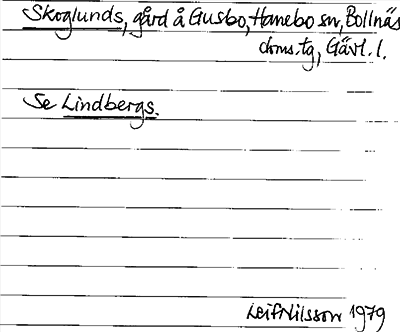 Skoglunds, gård å Gusbo, Hanebo sn, Bollnäs
dms.tg, Gävl. l.
Se Lindbergs.
Leif Nilsson 1979